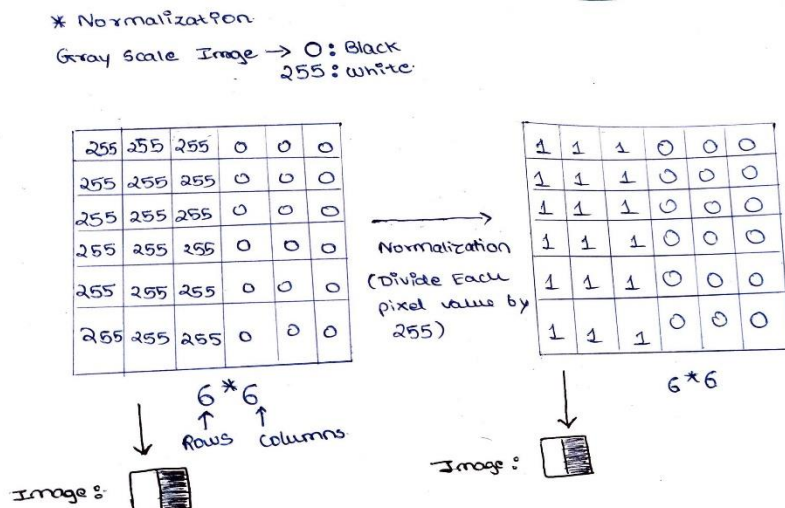 * Normalization
Gray Scale Image → 0: Black
255: white.
255 255 255 0 0 0
255 255 255 0 0 0
255 255 255 0 0 0
255 255 255 0 0 0
255 255 255 0 0 0
255 255 255 0 0 0
6 * 6
Rows Columns.
Image:
Normalization
(Divide Each
pixel value by
255)
1 1 1 0 0 0
1 1 1 0 0 0
1 1 1 0 0 0
1 1 1 0 0 0
1 1 1 0 0 0
1 1 1 0 0 0
6*6
Image: